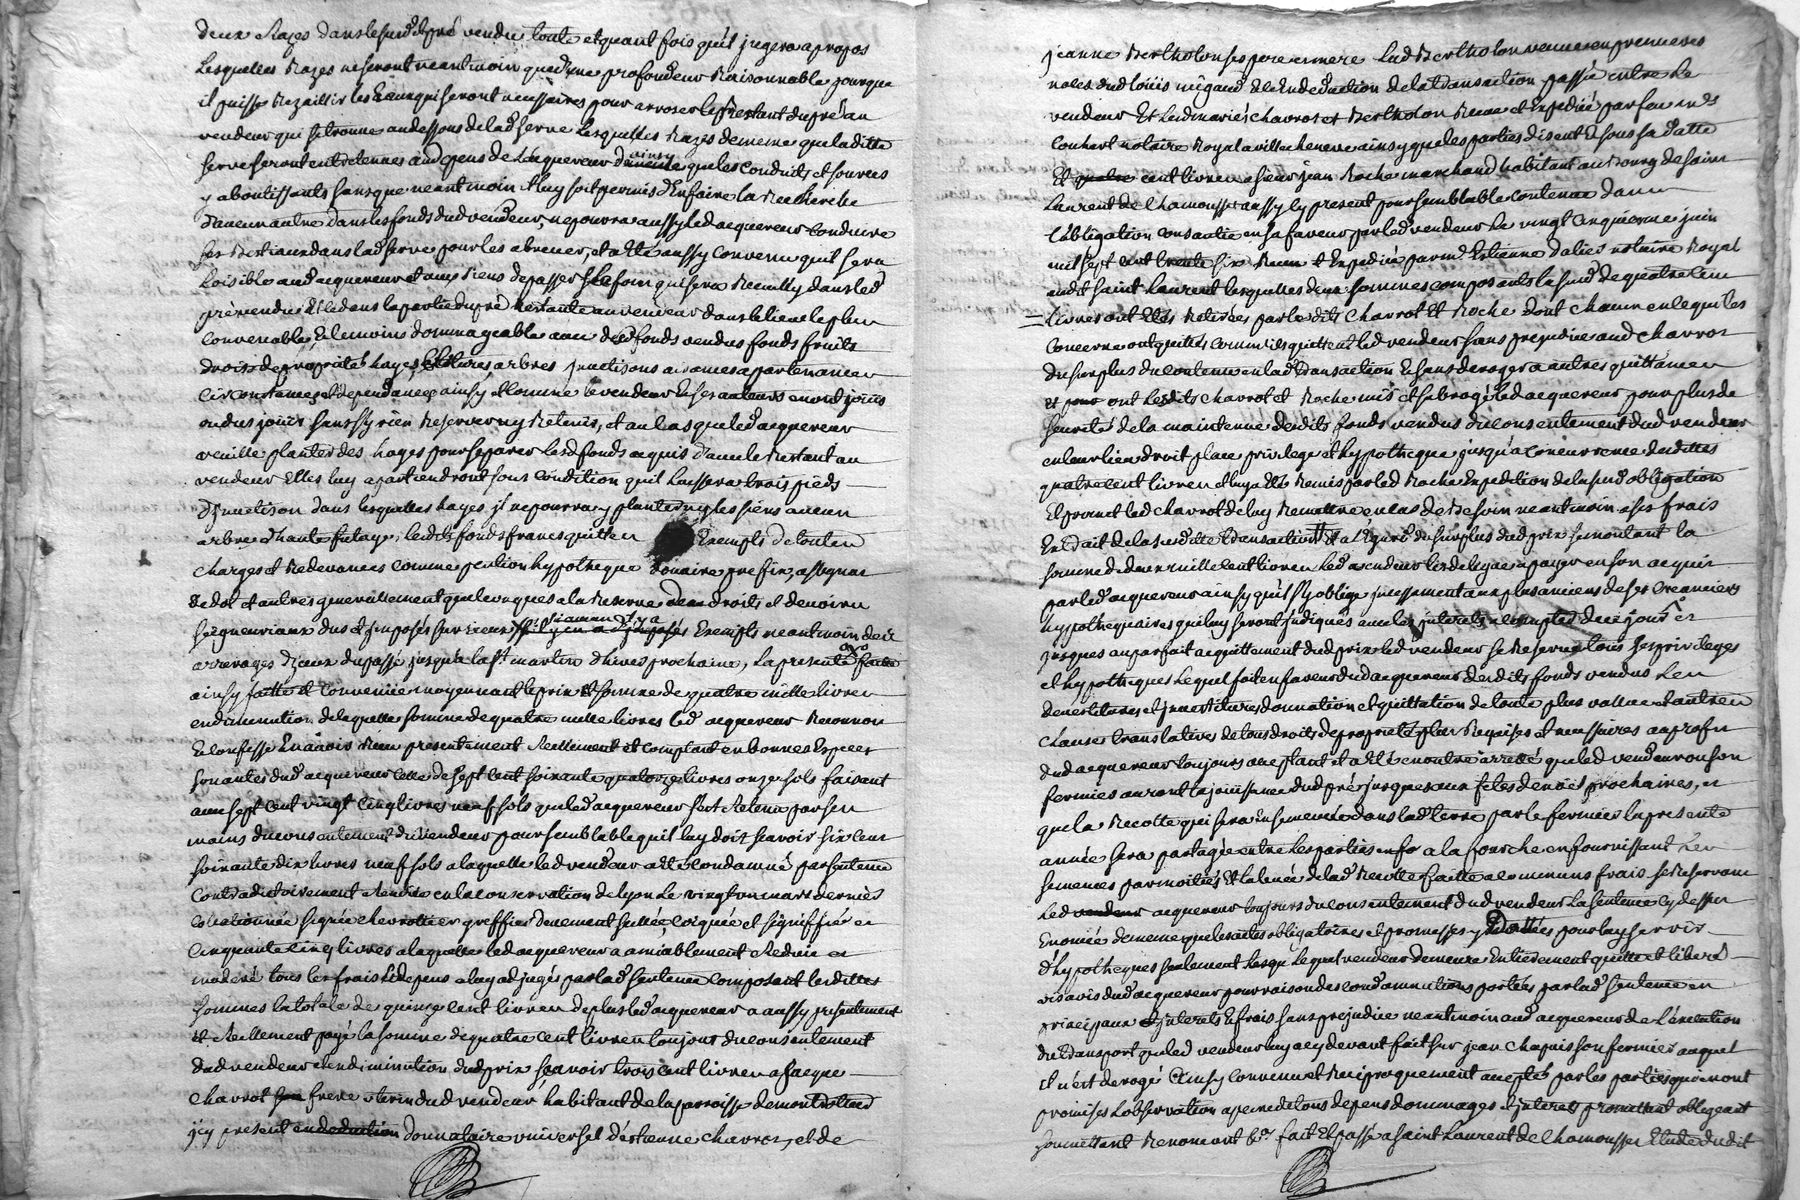 deux Razes dans le surd. pré vendu toute et quant fois qu'il jugera apropos
Lesquelles Razes ne seront neantmoin que d'une profondeur Raisonnable pour que
il puisse Rezaillir les Eaux qui seront necessaires pour arroser le Restant du pré au
vendeur qui se trouve au dessous de lad. serve Lesquelles Razes de meme que laditte
serve seront entretenues aux depens de L'acquereur ainsy que les conduits et sources
y aboutissants sans que neantmoin il luy soit permis d'En faire la Recherche
d'aucun autre dans les fonds dud vendeur, ne pourra aussy led acquereur conduire
ses Bestiaux dans lad serve pour les abreuer, et a Eté aussy convenu qu'il sera
Loisible aud acquereur et aux siens de passer Le foin qui sera Recueilly dans led
pré vendu Et le dans la partie du pré Restante au vendeur dans le lieu le plus
convenable Et le moins dommageable avec desd fonds vendus fonds fruits
droits de propriété hayes clotures arbres jnactisons aisances apartenances
circonstances et dependances ainsy et comme le vendeur Et ses auteurs en ont jouis
ou dus jouir sans sy rien Reserver ny Retenir, et au cas que led acquereur
veuille planter des hayes pour separer lesd fonds acquis d'avec le Restant au
vendeur Elles luy apartiendront sous condition qu'il laissera trois pieds
d'jnactison dans lesquelles hayes jl ne pourra y planter ny les siens aucun
arbre d'haute futaye, lesdits fonds francs quittes Exempts de toutes
charges et Redevances comme pention hypotheque douaire prefix, assignat
de dot et autres generallement quelconques a la Reserve des droits et devoirs
seigneuriaux dus et jmposés sur iceux sy aucun jl y a Exempts neantmoin des
arrerages d'jceux du passé jusqu'a la st martin d'hiver prochaine, La presente
ainsy faitte et convenüe moyennant le prix et somme de quatre mille livres
en diminution de laquelle somme de quatre mille livres led acquereur Reconnoi
Et confesse En avoir Recu presentement Reellement et comptant en bonnes Especes
sonantes dud acquereur celle de sept cent soixante quatorze livres onze sols faisant
avec sept cent vingt cinq livres neuf sols que led acquereur s'est Retenu par ses
mains du consentement du vendeur pour semblable qu'il luy doit scavoir six cent
soixante dix livres neuf sols a laquelle led vendeur a Eté condamné par sentence
contradictoirement Rendüe en la conservation de Lyon Le vingt mars dernier
collationnée signée greffier deuement scellée, et signiffiée et
cinquante cinq livres a laquelle led acquereur a amiablement Reduit et
moderé tous les frais Et depens a luy adjugés par lad sentence composant lesdittes
sommes la totale de quinze cent livres de plus led acquereur a aussy presentement
et Reellement payé la somme de quatre cent livres toujour du consentement
dud vendeur et en diminution dud prix scavoir trois cent livres a Jacque
Chavrot frere uterin dud vendeur habitant de la parroisse de
jcy present donnataire universel d'Estienne chavrot, et de
jeanne Bertholon ses pere et mere Lad Bertholon veuve en premieres
noces dud Loüis Et En deduction de la transaction passée entre Le
vendeur Et lesd mariés chavrot et Bertholon Recue et Expediée par feu me
Couhert notaire Royal a villechenerve ainsy que les parties disent Et sous sa datte
Et cent livres a sieur jean Roche marchand habitant au Bourg de saint
Laurent de Chamousset aussy jcy present pour semblable contenue dans
L'obligation consantie en sa faveur par led vendeur Le vingt cinquieme juin
mil sept cent trente six Recue et Expediée par me Estienne Dalier notaire Royal
aud st saint Laurent lesquelles deux sommes composants la susd de quatre cent
= Livres ont Etés Retirées par lesdits Chavrot Et Roche dont chacun en le qui les
concerne ont quittés comm'ils quittent led vendeur sans prejudice aud chavrot
du surplus du contenu en lad transaction Et sans deroger a autres quittances
ont Lesdits chavrot et Roche mis et subrogé led acquereur pour plus de
seureté de la maintenue desdits fonds vendus du consentement dud vendeur
en leur lieu droit place privilege et hypotheque jusqu'a concurrence desdittes
quatre cent livres et luy a Eté Remis par led Roche Expedition de la susd obligation
Et promet led chavrot de luy Remettre en cas de Besoin neantmoin a ses frais
Extrait de la susditte transaction Et a l'Egard du surplus dud prix se montant la
somme de deux mille cent livres led vendeur les delegue a payer en son acquit
par led acquereur ainsy qu'il s'y oblige jncessament aux plus anciens de ses creanciers
hypothequaires qui luy seront jndiqués avec les jnterets a compter de ce jour et
jusques au parfait acquittement dud prix led vendeur se Reserve tous ses privileges
et hypotheques Lequel fait en faveur dud acquereur desdits fonds vendus Les
devestitures et jnvestitures donnation et quittation de toute plus vallue et autres
clauses translatives de tous droits de proprieté plus Requises et necessaires au profit
dud acquereur toujours aceptant et a Eté encontre arreté que led vendeur ou son
fermier auront la jouissance dud pré jusques aux fetes de noël prochaines, et
que la Recolte qui sera ensemencée dans lad terre par le fermier la presente
année sera partagée entre les parties a la fourche en fournissant Les
semences par moitiés Et la levée de lad Recolte faitte a communs frais se Reservant
led acquereur toujours du consentement dud vendeur La sentence cy dessus
Enoncée de meme que les actes obligatoires et promesses y dattées pour luy servir
d'hypotheques seulement Lesqu Lequel vendeur demeure Entierement quitte et liberé
vis avis dud acquereur pour raison des condamnations portées par lad sentence en
principaux jnterets Et frais sans prejudice neantmoin aud acquereur de L'execution
du transport que led vendeur luy a cy devant fait sur jean chapuis son fermier auquel
il n'est derogé Ainsy convenu et Reciproquement accepté par les parties qui en ont
promises L'observation a peine de tous depens dommages et jnterets promettant obligeant
soumettant Renoncant &a fait Et passé a saint Laurent de Chamousset Etude dudit